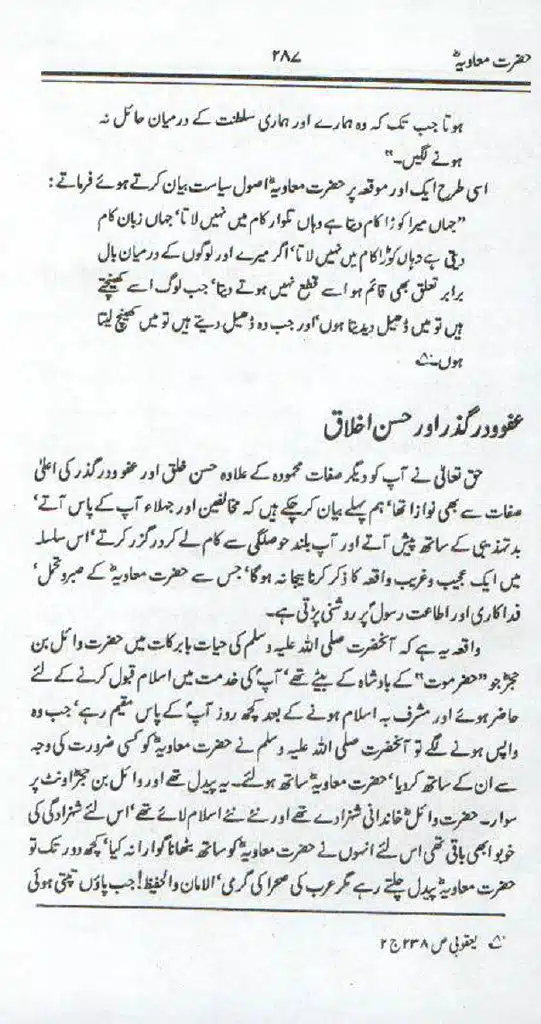 حضرت معاویہؓ
۲۸۷
ہوتا جب تک کہ وہ ہمارے اور ہماری سلطنت کے درمیان حائل نہ
ہونے لگیں۔"
اسی طرح ایک اور موقعہ پر حضرت معاویہؓ اصول سیاست بیان کرتے ہوئے فرماتے :
"جہاں میرا کوڑا کام دیتا ہے وہاں تلوار کام میں نہیں لاتا' جہاں زبان کام
دیتی ہے وہاں کوڑا کام میں نہیں لاتا' اگر میرے اور لوگوں کے درمیان بال
برابر تعلق بھی قائم ہو اسے قطع نہیں ہونے دیتا' جب لوگ اسے کھینچتے
ہیں تو میں ڈھیل دیدیتا ہوں' اور جب وہ ڈھیل دیتے ہیں تو میں کھینچ لیتا
ہوں۔
عفو و درگذر اور حسن اخلاق
حق تعالیٰ نے آپ کو دیگر صفات محمودہ کے علاوہ حسن خلق اور عفو و درگذر کی اعلیٰ
صفات سے بھی نوازا تھا' ہم پہلے بیان کر چکے ہیں کہ مخالفین اور جہلاء آپ کے پاس آتے'
بدتہذیبی کے ساتھ پیش آتے اور آپ بلند حوصلگی سے کام لے کر درگزر کرتے' اس سلسلہ
میں ایک عجیب و غریب واقعہ کا ذکر کرنا بیجا نہ ہوگا' جس سے حضرت معاویہؓ کے صبر و تحمل'
فداکاری اور اطاعت رسولؐ پر روشنی پڑتی ہے۔
واقعہ یہ ہے کہ آنحضرت صلی اللہ علیہ وسلم کی حیات بابرکات میں حضرت وائل بن
حجرؓ جو "حضرموت" کے بادشاہ کے بیٹے تھے' آپؐ کی خدمت میں اسلام قبول کرنے کے لئے
حاضر ہوئے اور مشرف بہ اسلام ہونے کے بعد کچھ روز آپؐ کے پاس مقیم رہے' جب وہ
واپس ہونے لگے تو آنحضرت صلی اللہ علیہ وسلم نے حضرت معاویہؓ کو کسی ضرورت کی وجہ
سے ان کے ساتھ کر دیا' حضرت معاویہؓ ساتھ ہولئے۔ یہ پیدل تھے اور وائل بن حجرؓ اونٹ پر
سوار۔ حضرت وائلؓ خاندانی شہزادے تھے اور نئے نئے اسلام لائے تھے' اس لئے شہزادگی کی
خوبو ابھی باقی تھی اس لئے انہوں نے حضرت معاویہؓ کو ساتھ بٹھانا گوارا نہ کیا' کچھ دور تک تو
حضرت معاویہؓ پیدل چلتے رہے مگر عرب کی صحرا کی گرمی' الامان والحفیظ! جب پاؤں تپتی ہوئی
یعقوبی ص ۲۳۸ ج ۲